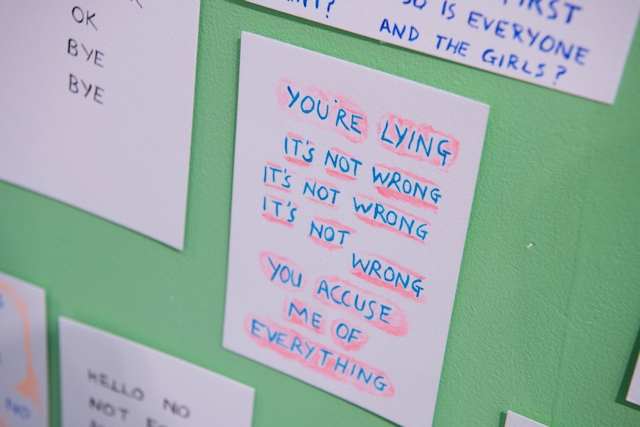 OK
BYE
BYE
FIRST
SO IS EVERYONE
AND THE GIRLS?
YOU'RE LYING
IT'S NOT WRONG
IT'S NOT WRONG
IT'S NOT
WRONG
YOU ACCUSE
ME OF
EVERYTHING
HELLO NO
NOT
NO